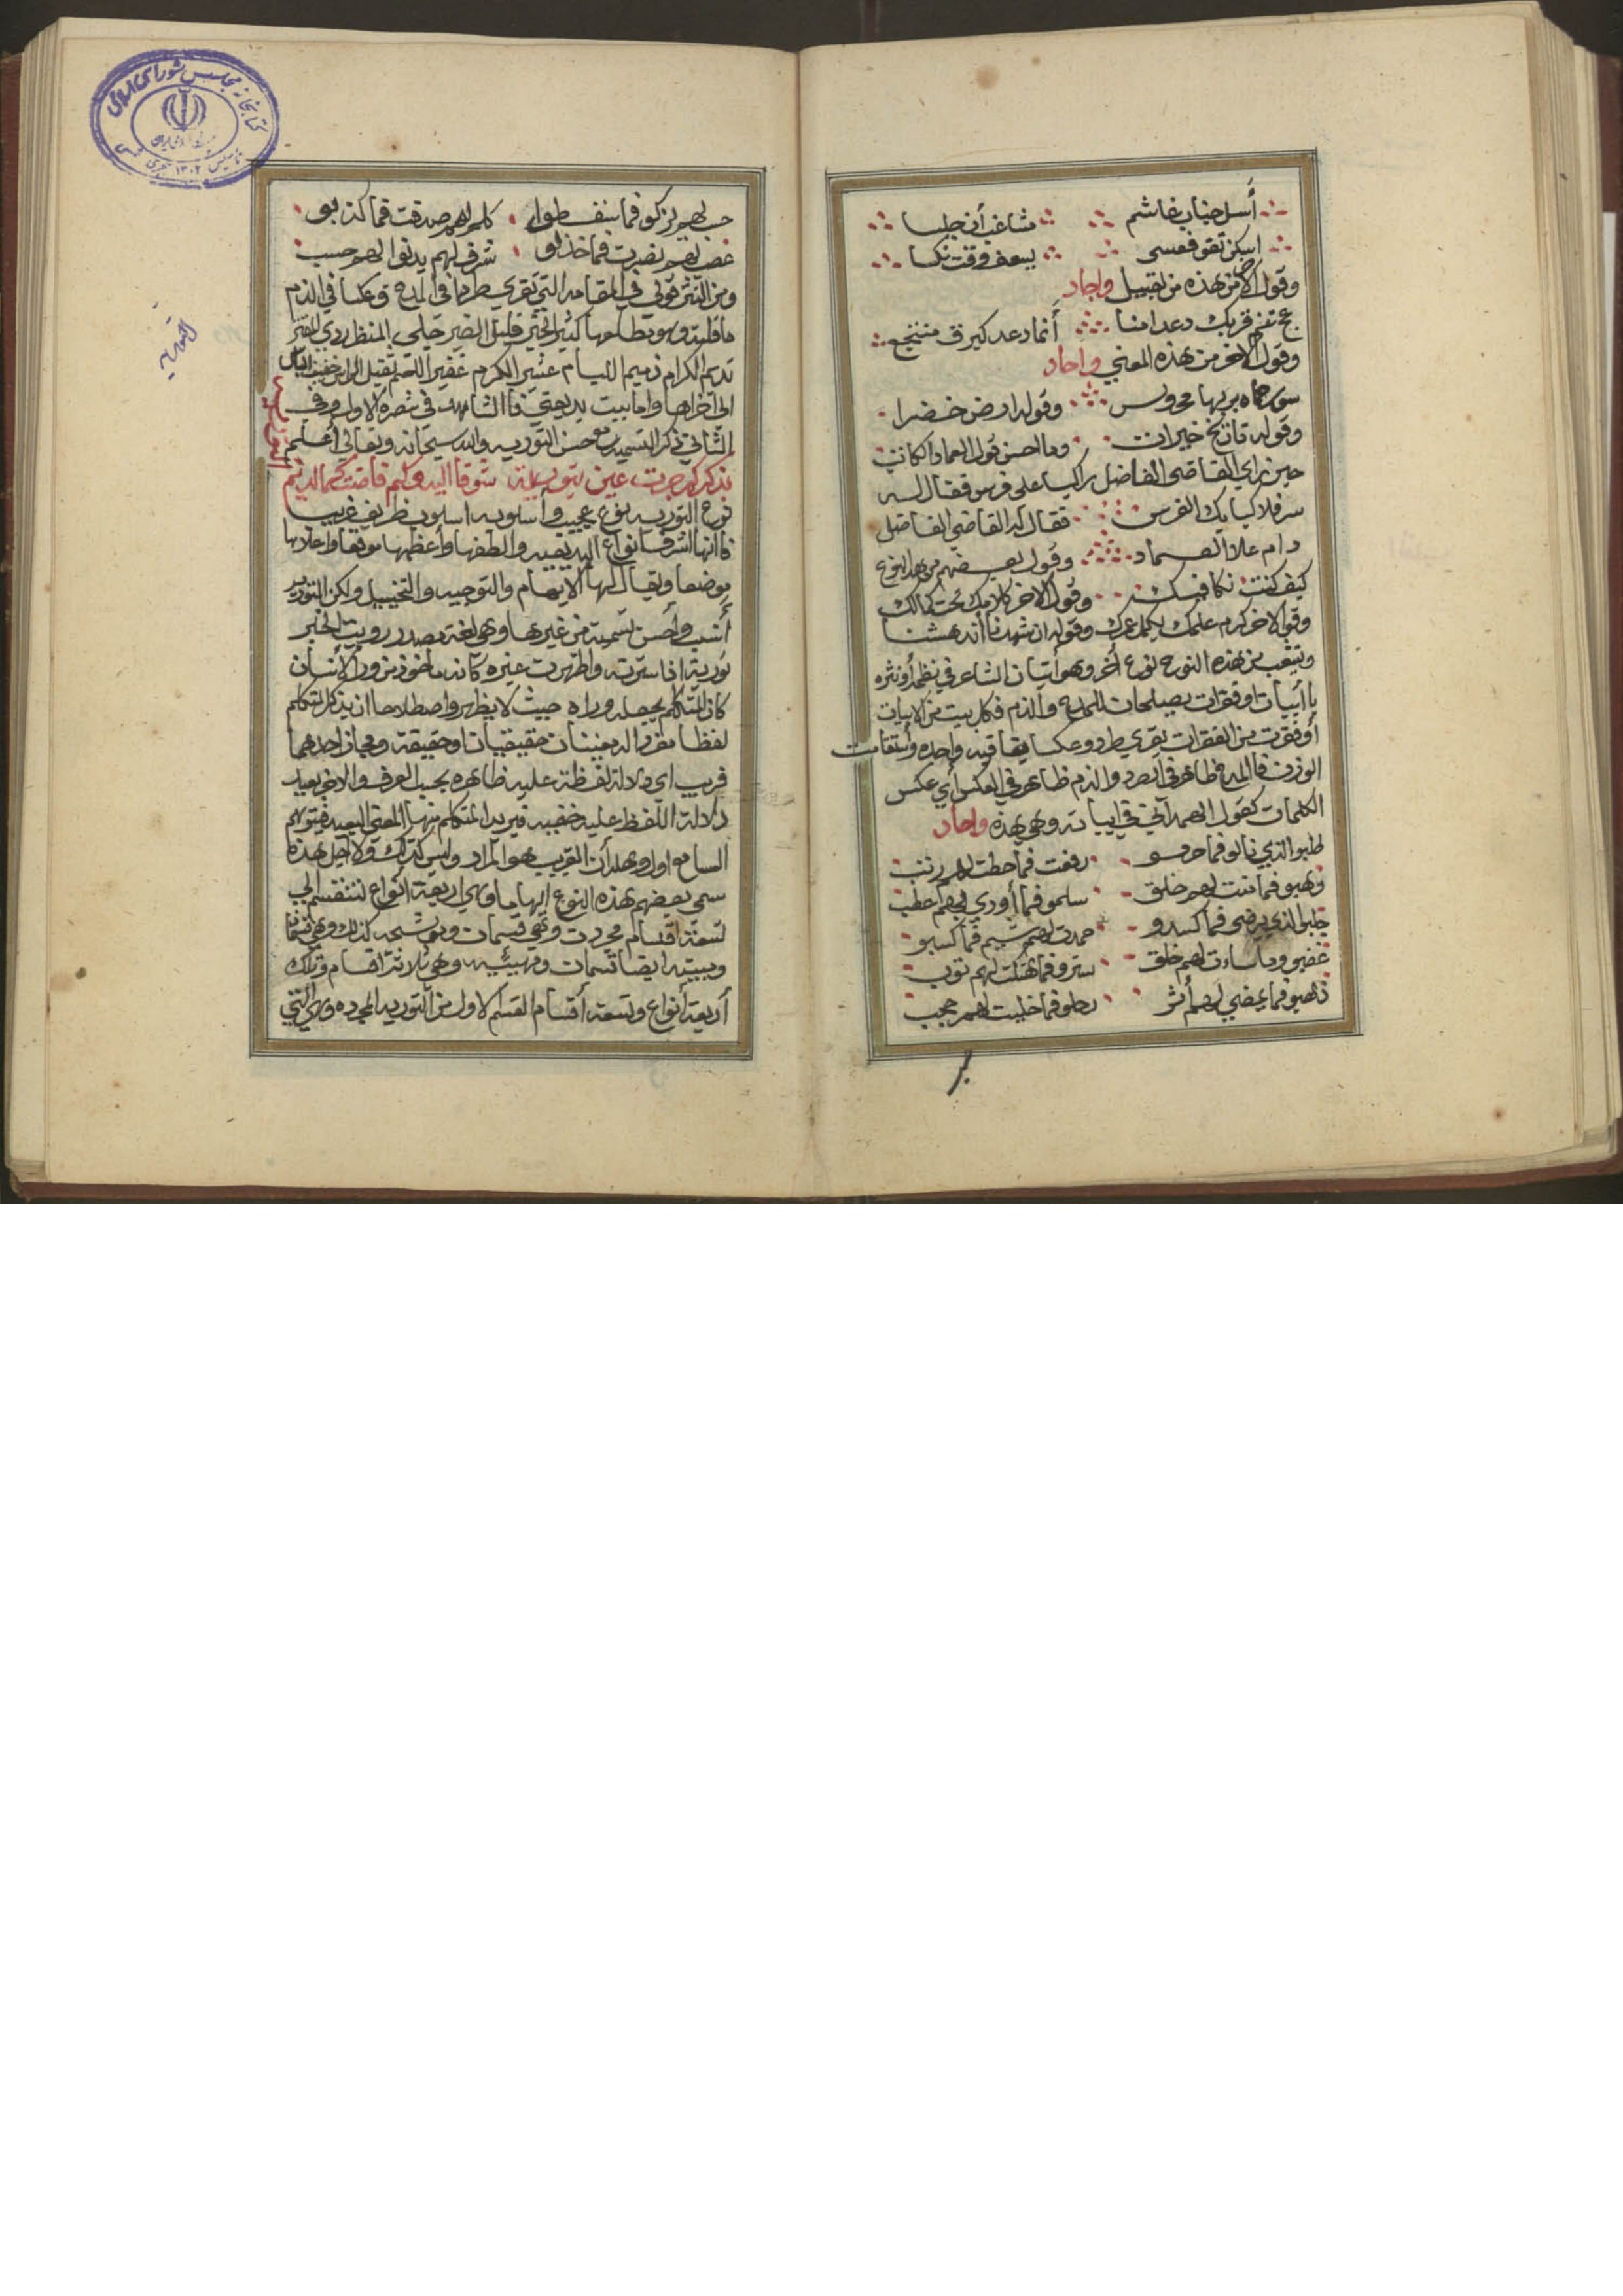 أسل جناب غاشم مشاغب أن جلسا
اسكن تقو فعسى يسعف وقت نكسا
وقول الآخر من هذه من تقبيل واجاد
عج تنم قربك دعد امنا أنما دعد كبرق منتجع
وقول الآخر من هذه المعني واجاد
سور حماه بربها محروس وقوله ارض خضرا
وقوله تاريخ خيرات وما احسن قول العماد الكاتب
حين راي القاضي الفاضل راكبا على فرس فقال له
سر فلا كبا بك الفرس فقال له القاضي الفاضل
دام علا العماد وقول بعضهم من هذ النوع
كيف كنت نكافيك وقول الآخر كلامك تحت كمالك
وقول الاخر كرم علمك يكمل عمرك وقوله ان شهدنا أندهشنا
ويتشعب من هذه النوع نوع أخر وهو أتيان الشاعر في نظمه أو نثره
باأبيات او فقرات يصلحان للمدح والذم فكل بيت من الابيات
أو فقرت من الفقرات يقري طرد وعكسا بقافيه واحده وأستقامت
الوزن فاالمدح ظاهر في الطرد والذم ظاهر في العكس أي عكس
الكلمات كقول الهمداني في ابياته وهي هذه واجاد
طلبو الذي نالو فما حرمو رفعت فما حطت لهم رتب
وهبو فما تمت لهم خلق سلمو فما أودي بهم عطب
جلبو الذي يرضي فما كسدو حمدت لهم شيم فما كسبو
غضبو وما ساءت لهم خلق سترو فما هتكت لهم نوب
ذهبو فما يمضي لهم أثر رحلو فما خليت لهم حجب
حسب لهم يزكو فما سقطوا كلم لهم صدقت فما كذبو
غضب لهم نصرت فما خذلو شرف لهم يدنوا لهم حسب
ومن النثر قولي في المقامه التي تقري طردا في المدح وعكسا في الذم
ما قلته وهو مطلعها كثير الخير قليل الضير حلي المنظر
نديم الكرام ذميم اللئيام عنبر الكرم غفير النعم ثقيل الراس خفيف
الى أخراها واما بيت بديعتي فاالشاهد في شطره الاول وفي
الثاني ذكر التسميه مع حسن التوريه والله سبحانه وتعالي أعلم
تذكر كم جرت عين بتوريه شوقا اليه وكم فاضت كما الديم
نوع التوريه نوع عجيب وأسلوبه اسلوب ظريف غريب
فاانها اشرف انواع البديعيه والطفها وأعظمها موقعا واعلاها
موضعا ويقال لها الايهام والتوجيه والتخييل ولكن التوريه
أنسب وأحسن تسميه من غيرها وهي لغة مصدر رويت الخبر
تورية اذا سترته واظهرت غيره كانه ماخوذ من ورا الأنسان
كان المتكلم يجعله وراه حيث لا يظهر واصطلاحا ان يذكر المتكلم
لفظا مفردا له معنيان حقيقيان او حقيقة ومجاز احدهما
قريب اي دلالة لفظة عليه ظاهره بحسب العرف والاخر بعيد
دلالة اللفظ عليه خفيه فيريد المتكلم منها المعني البعيد فيتوهم
السامع اول وهله أن القريب هو المراد وليس كذلك ولأجل هذه
سمى بعضهم هذه النوع ايهاما وهي اربعة انواع تنقسم الي
تسعة اقسام مجردت وهي قسمان ومرشحه كذلك وهي قسمان
ومبينه ايضا قسمان ومهيئه وهي ثلاثة اقسام وتلك
أربعة أنواع وتسعة أقسام القسم الاول من التوريه المجرده وهي التي
التوريه
كتابخانه مجلس شورای اسلامی